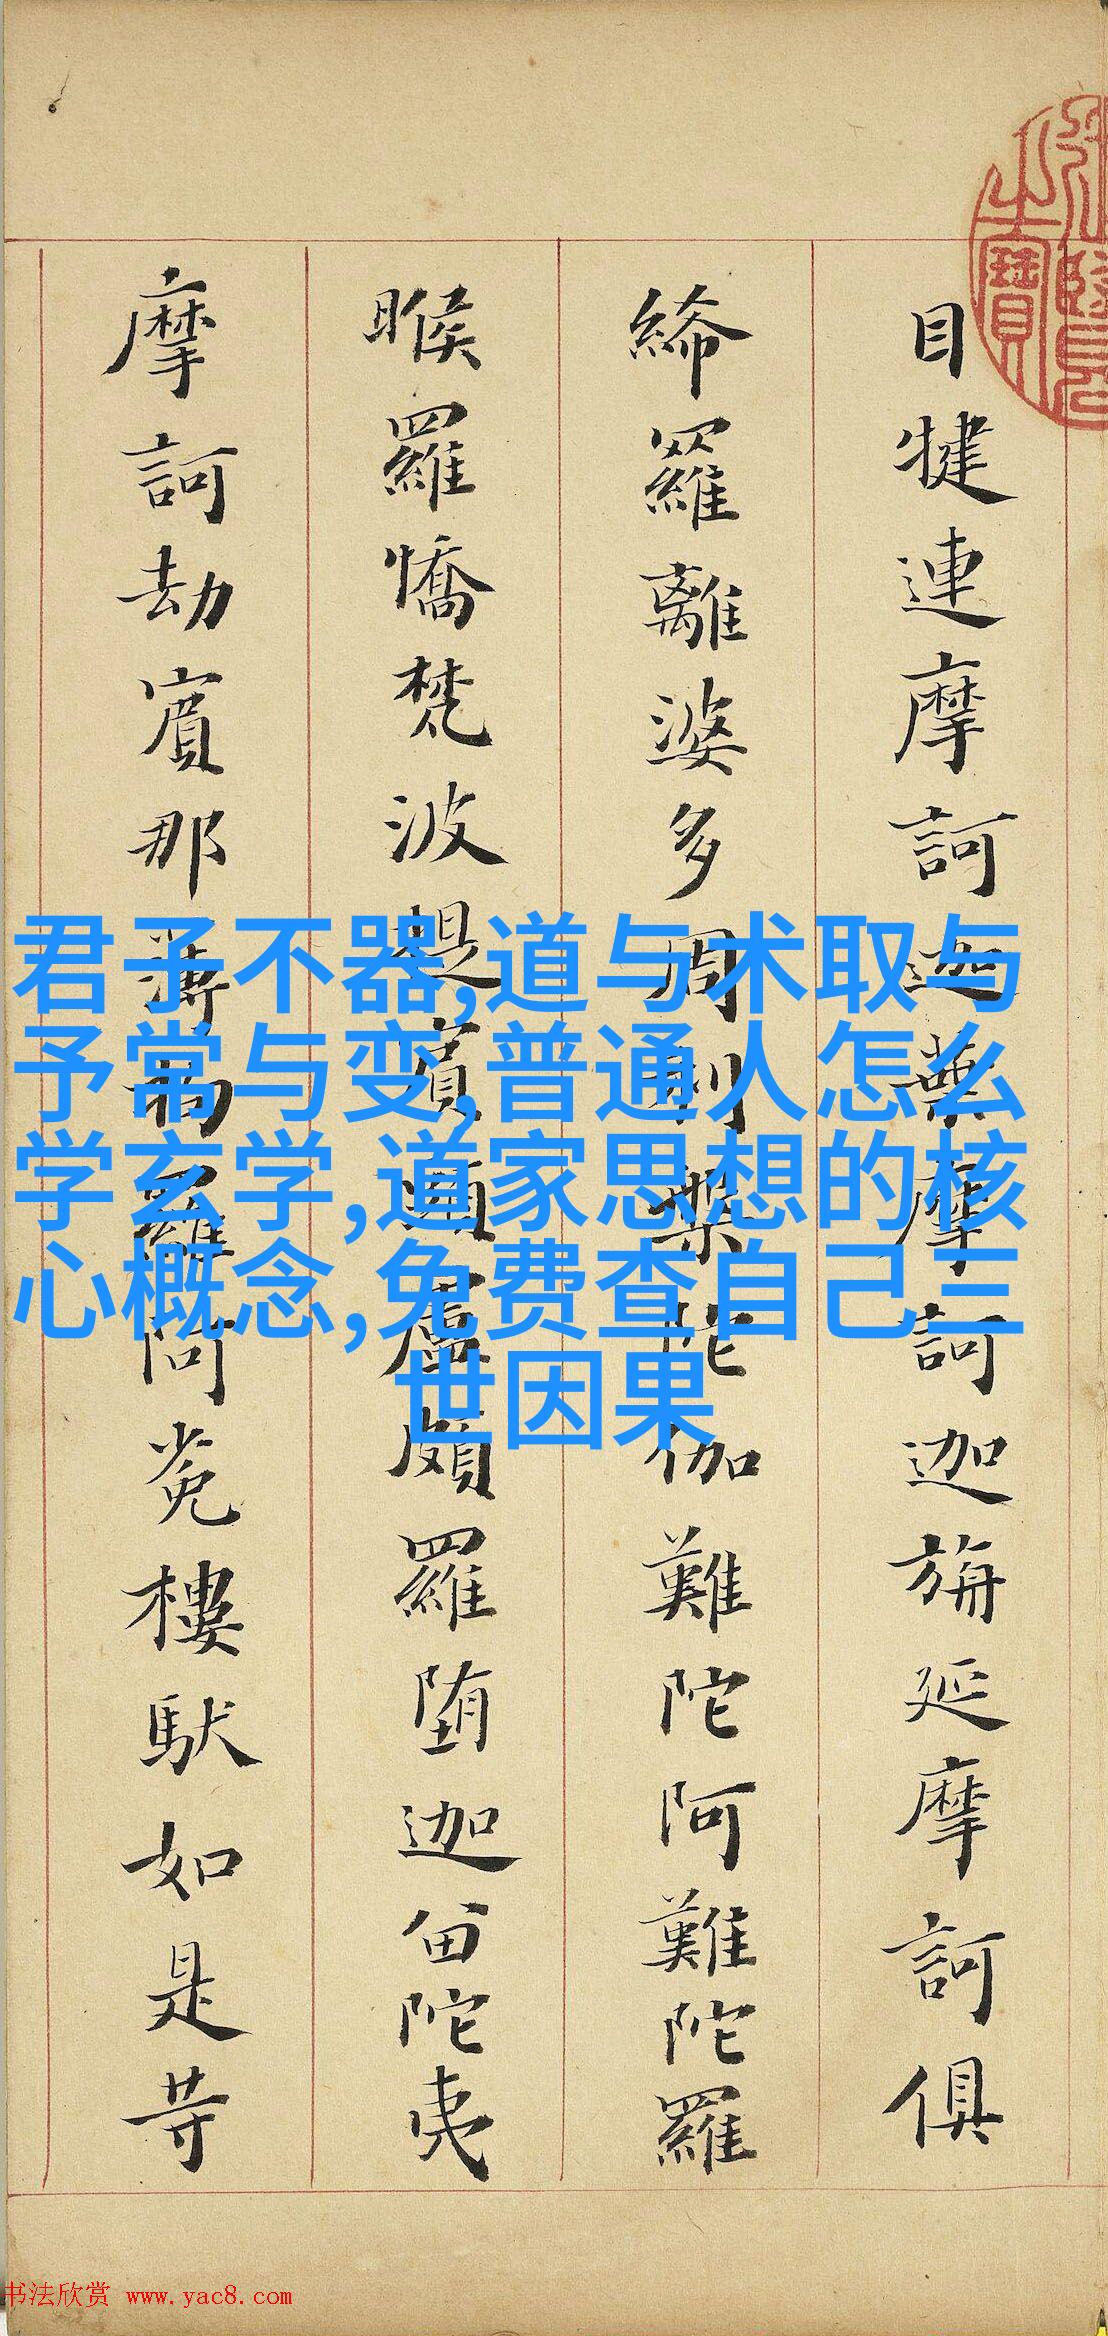 目犍連摩訶迦葉摩訶迦旃延摩訶俱
絺羅離婆多周利槃陀伽難陀阿難陀羅
睺羅憍梵波提賓頭盧頗羅堕迦留陀夷
摩訶劫賓那薄拘羅阿㝹樓馱如是等
君子不器,道与术取与
予常与变,普通人怎么
学玄学,道家思想的核
心概念,免费查自己三
世因果
书法欣赏 www.yac8.com